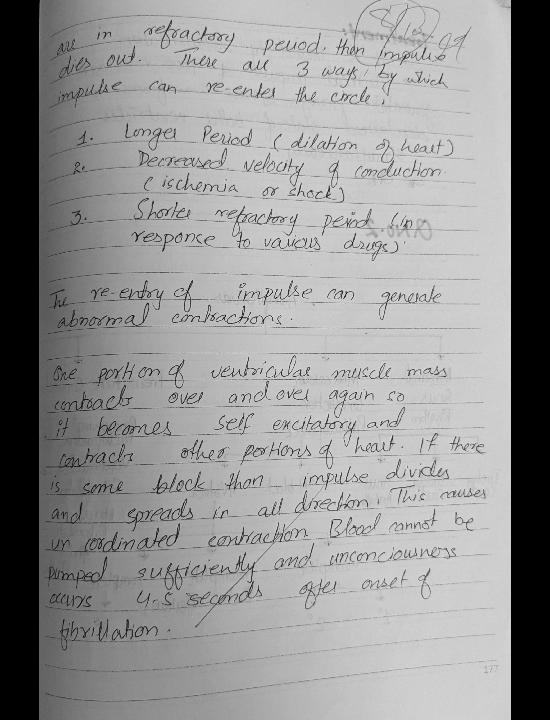 are in refractory period. then Impulse
dies out. There are 3 ways, by which
impulse can re-enter the circle.
1. Longer Period (dilation of heart)
2. Decreased velocity of conduction
(ischemia or shock)
3. Shorter refractory period (in
response to various drugs).
The re-entry of impulse can generate
abnormal contractions.
One portion of ventricular muscle mass
contracts over and over again so
it becomes self excitatory and
contracts other portions of heart. If there
is some block than impulse divides
and spreads in all direction. This causes
un cordinated contraction Blood cannot be
pumped sufficiently and unconciousness
occurs 4.5 seconds after onset of
fibrillation.
177